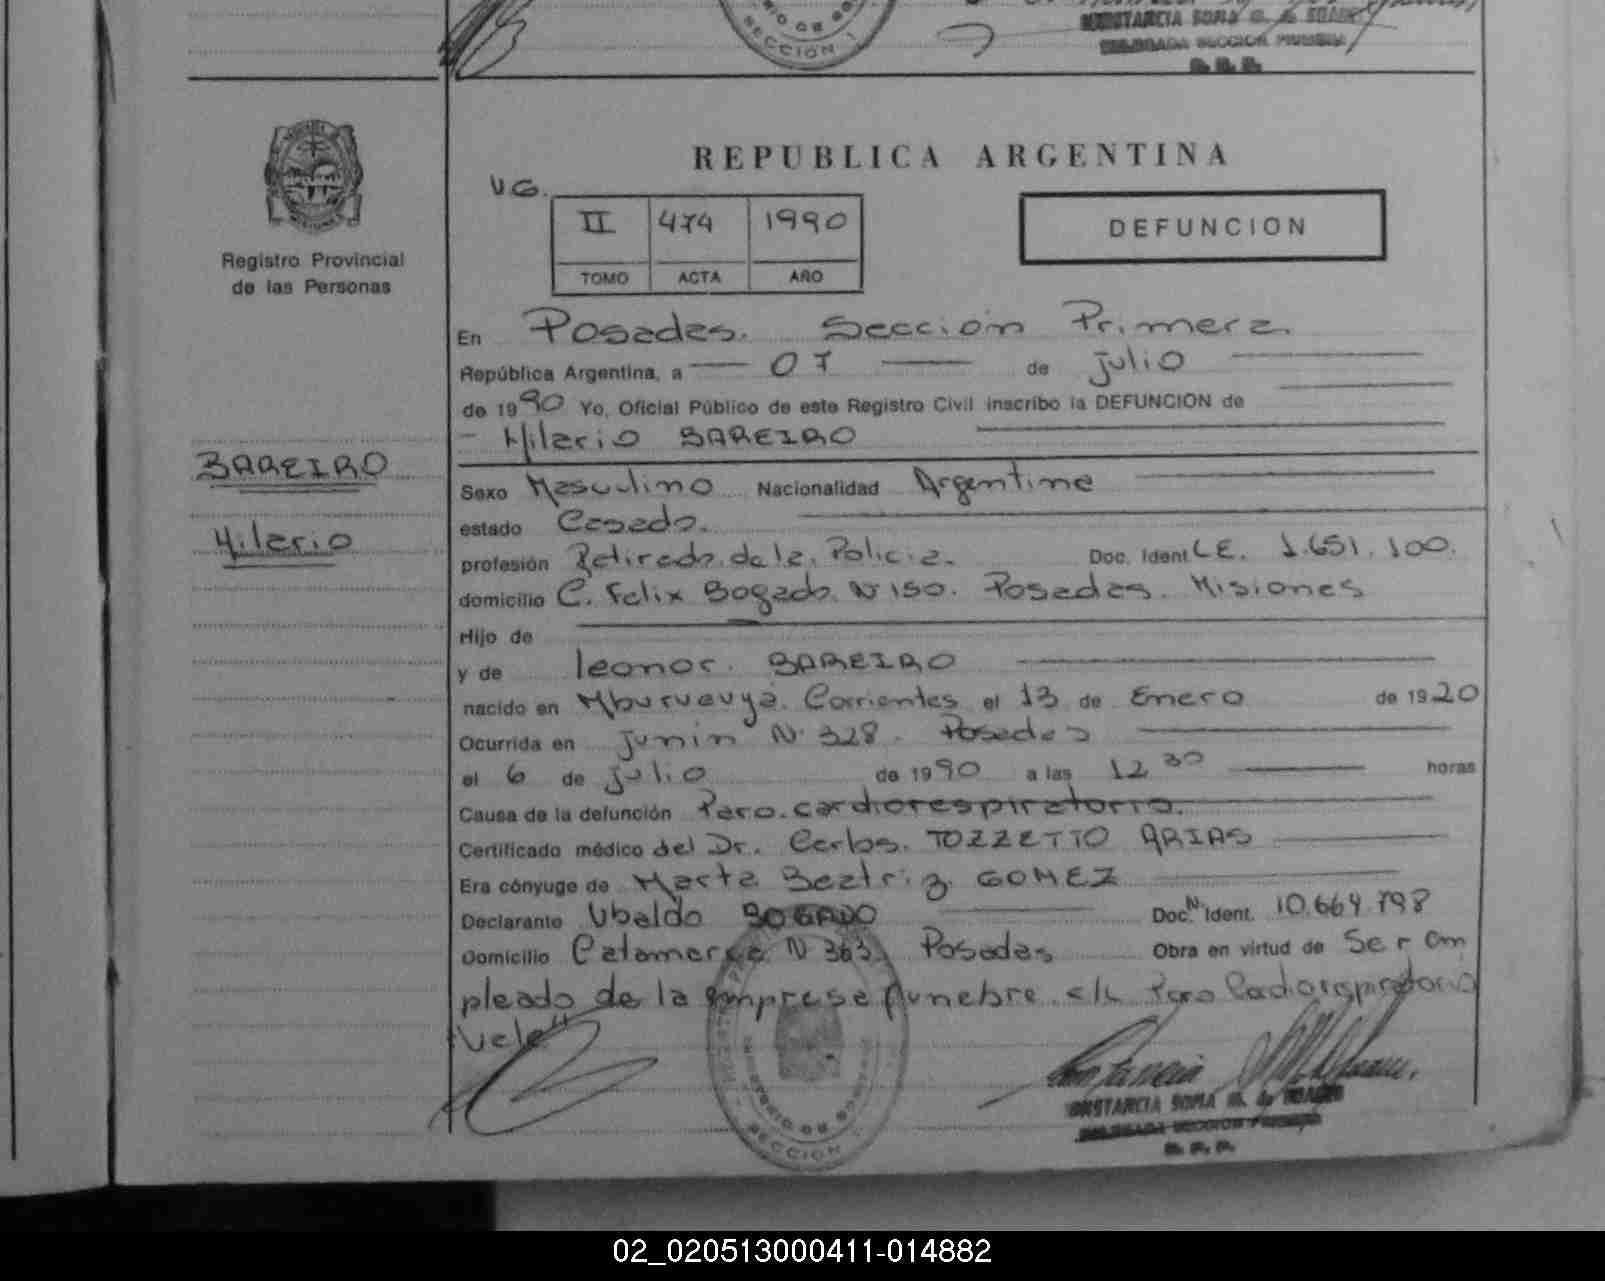 SECCIÓN 1
CONSTANCIA SOFIA
DELEGADA SECCION PRIMERA
R. P. P.
Registro Provincial
de las Personas
REPUBLICA ARGENTINA
VG.
II 474 1990
TOMO ACTA AÑO
DEFUNCION
En Posadas. Sección Primera.
República Argentina, a 07 de julio
de 1990 Yo, Oficial Público de este Registro Civil inscribo la DEFUNCION de
Hilario BAREIRO
BAREIRO
Hilario
Sexo Masculino Nacionalidad Argentina
estado Casado.
profesión Retirado de la Policia. Doc. Ident L.E. 1.651.100.
domicilio C. Felix Bogado Nº 150. Posadas. Misiones
Hijo de
y de leonor. BAREIRO
nacido en Mburucuyá. Corrientes el 13 de Enero de 1920
Ocurrida en junin Nº 328. Posadas
el 6 de julio de 1990 a las 12 30 horas
Causa de la defunción Paro. cardiorespiratorio.
Certificado médico del Dr. Carlos. TOZZETTO ARIAS
Era cónyuge de Marta Beatriz GOMEZ
Declarante Ubaldo BOGADO Doc. Nº Ident. 10.664.798
Domicilio Catamarca N 363 Posadas Obra en virtud de Ser em
pleado de la empresa funebre Paro Cadiorespiratorio
Vale"
SECCION 1
CONSTANCIA SOFIA
DELEGADA SECCION PRIMERA
R. P. P.
02_020513000411-014882